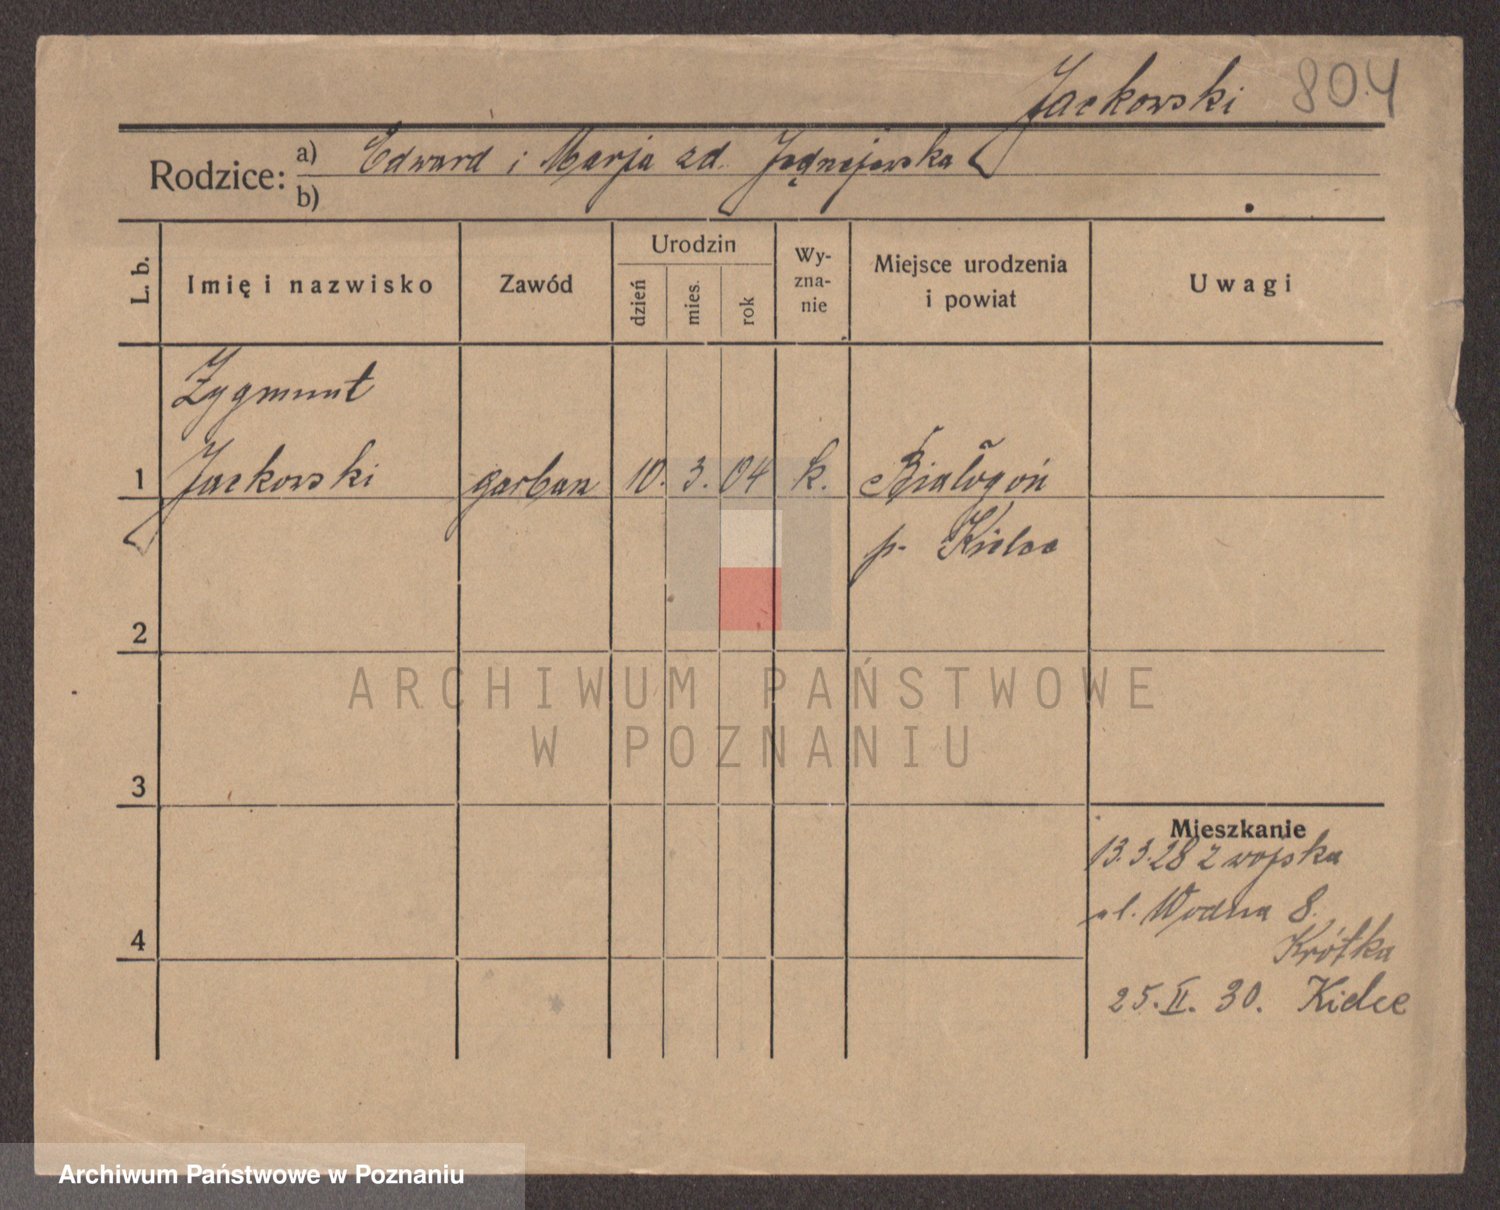 Jackowski 804
Rodzice: a) Edward i Marja zd.
b)
L. b. Imię i nazwisko Zawód Urodzin dzień mies. rok Wy-zna-nie Miejsce urodzenia i powiat Uwagi
Zygmunt
1 Jackowski garbarz 10. 3. 04 k. Białogoń
p. Kielce
2
ARCHIWUM PAŃSTWOWE
W POZNANIU
3
Mieszkanie
13.3.28 z wojska
ul. Wodna 8.
Krótka
4
25.II.30. Kielce
Archiwum Państwowe w Poznaniu